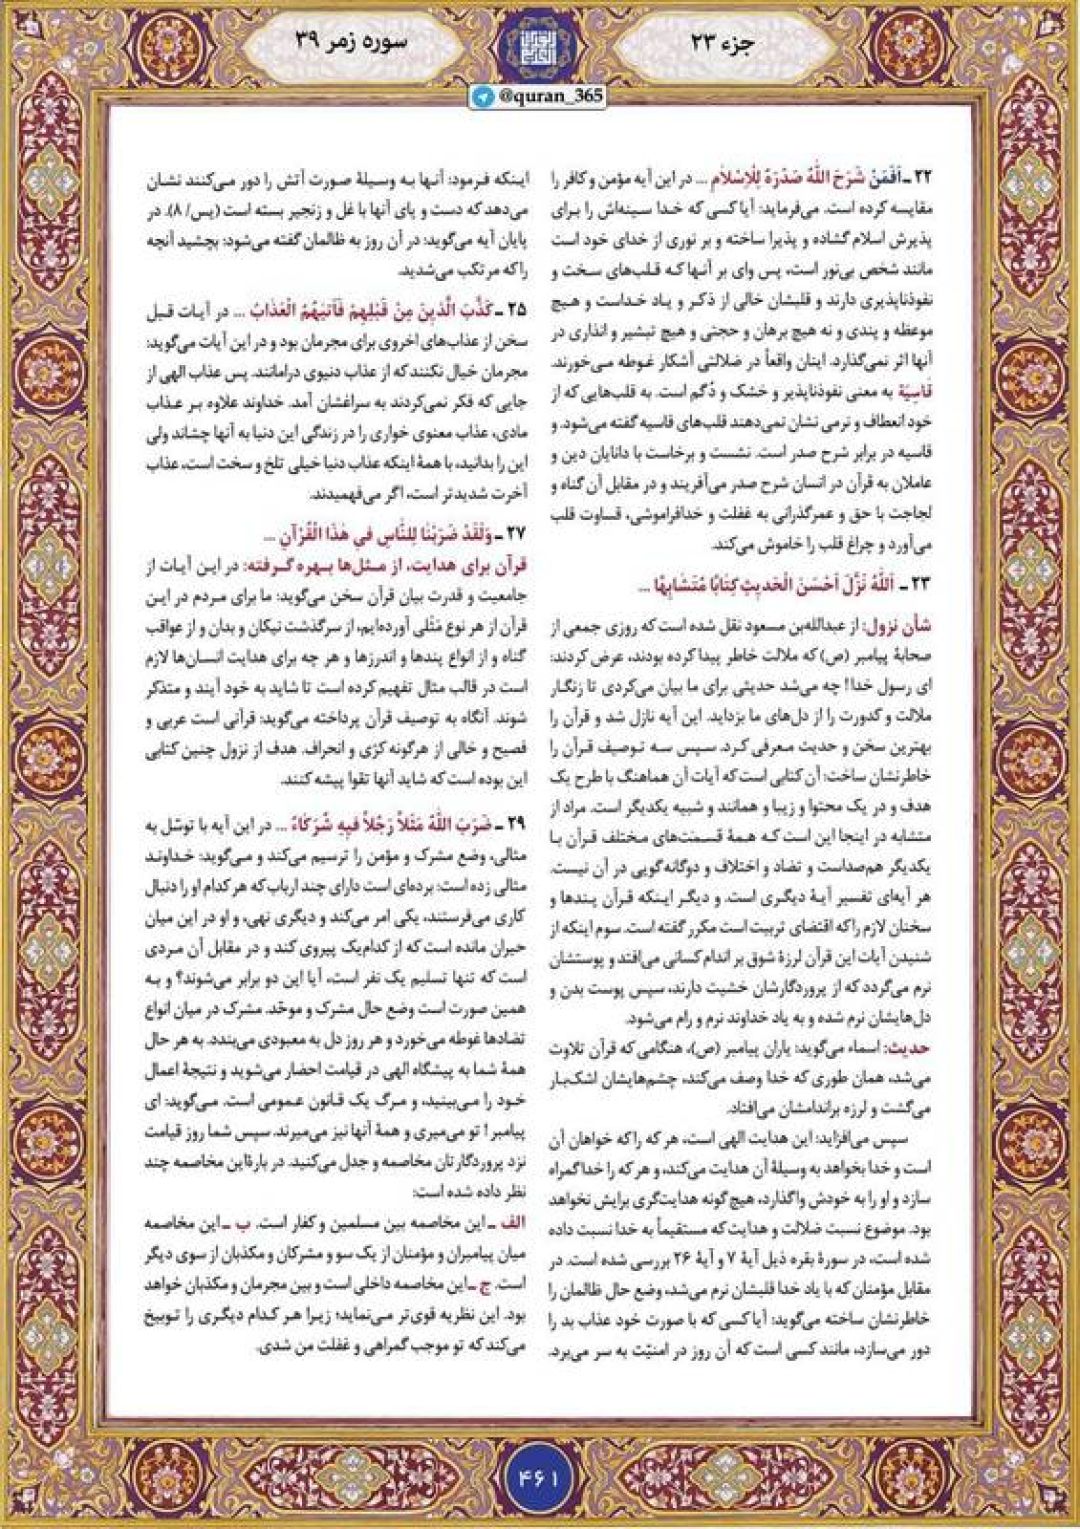 جزء ۲۳
سوره زمر ۳۹
@quran_365
۲۲ ـ أَفَمَنْ شَرَحَ اللّٰهُ صَدْرَهُ لِلْإِسْلَامِ ... در این آیه مؤمن و کافر را
مقایسه کرده است. می‌فرماید: آیا کسی که خدا سینه‌اش را برای
پذیرش اسلام گشاده و پذیرا ساخته و بر نوری از خدای خود است
مانند شخص بی‌نور است، پس وای بر آنها که قلب‌های سخت و
نفوذناپذیری دارند و قلبشان خالی از ذکر و یاد خداست و هیچ
موعظه و پندی و نه هیچ برهان و حجتی و هیچ تبشیر و انذاری در
آنها اثر نمی‌گذارد. اینان واقعاً در ضلالتی آشکار غوطه می‌خورند.
قٰاسِیَة به معنی نفوذناپذیر و خشک و دُگم است. به قلب‌هایی که از
خود انعطاف و نرمی نشان نمی‌دهند قلب‌های قاسیه گفته می‌شود. و
قاسیه در برابر شرح صدر است. نشست و برخاست با دانایان دین و
عاملان به قرآن در انسان شرح صدر می‌آفریند و در مقابل آن گناه و
لجاجت با حق و عمرگذرانی به غفلت و خدافراموشی، قساوت قلب
می‌آورد و چراغ قلب را خاموش می‌کند.
۲۳ ـ اَللّٰهُ نَزَّلَ اَحْسَنَ الْحَدیثِ کِتٰابًا مُتَشٰابِهًا ...
شأن نزول: از عبدالله‌بن مسعود نقل شده است که روزی جمعی از
صحابهٔ پیامبر (ص) که ملالت خاطر پیدا کرده بودند، عرض کردند:
ای رسول خدا! چه می‌شد حدیثی برای ما بیان می‌کردی تا زنگار
ملالت و کدورت را از دل‌های ما بزداید. این آیه نازل شد و قرآن را
بهترین سخن و حدیث معرفی کرد. سپس سه توصیف قرآن را
خاطرنشان ساخت: آن کتابی است که آیات آن هماهنگ با طرح یک
هدف و در یک محتوا و زیبا و همانند و شبیه یکدیگر است. مراد از
متشابه در اینجا این است که همهٔ قسمت‌های مختلف قرآن با
یکدیگر هم‌صداست و تضاد و اختلاف و دوگانه‌گویی در آن نیست.
هر آیه‌ای تفسیر آیهٔ دیگری است. و دیگر اینکه قرآن پندها و
سخنان لازم را که اقتضای تربیت است مکرر گفته است. سوم اینکه از
شنیدن آیات این قرآن لرزهٔ شوق بر اندام کسانی می‌افتد و پوستشان
نرم می‌گردد که از پروردگارشان خشیت دارند، سپس پوست بدن و
دل‌هایشان نرم شده و به یاد خداوند نرم و رام می‌شود.
حدیث: اسماء می‌گوید: یاران پیامبر (ص)، هنگامی که قرآن تلاوت
می‌شد، همان طوری که خدا وصف می‌کند، چشم‌هایشان اشک‌بار
می‌گشت و لرزه براندامشان می‌افتاد.
سپس می‌افزاید: این هدایت الهی است، هر که را که خواهان آن
است و خدا بخواهد به وسیلهٔ آن هدایت می‌کند، و هر که را خدا گمراه
سازد و او را به خودش واگذارد، هیچ گونه هدایت‌گری برایش نخواهد
بود. موضوع نسبت ضلالت و هدایت که مستقیماً به خدا نسبت داده
شده است، در سورهٔ بقره ذیل آیهٔ ۷ و آیهٔ ۲۶ بررسی شده است. در
مقابل مؤمنان که با یاد خدا قلبشان نرم می‌شد، وضع حال ظالمان را
خاطرنشان ساخته می‌گوید: آیا کسی که با صورت خود عذاب بد را
دور می‌سازد، مانند کسی است که آن روز در امنیّت به سر می‌برد.
اینکه فرمود: آنها به وسیلهٔ صورت آتش را دور می‌کنند نشان
می‌دهد که دست و پای آنها با غل و زنجیر بسته است (یس/ ۸). در
پایان آیه می‌گوید: در آن روز به ظالمان گفته می‌شود: بچشید آنچه
را که مرتکب می‌شدید.
۲۵ ـ کَذَّبَ الَّذینَ مِنْ قَبْلِهِمْ فَأَتٰیهُمُ الْعَذٰابُ ... در آیات قبل
سخن از عذاب‌های اخروی برای مجرمان بود و در این آیات می‌گوید:
مجرمان خیال نکنند که از عذاب دنیوی درامانند. پس عذاب الهی از
جایی که فکر نمی‌کردند به سراغشان آمد. خداوند علاوه بر عذاب
مادی، عذاب معنوی خواری را در زندگی این دنیا به آنها چشاند ولی
این را بدانید، با همهٔ اینکه عذاب دنیا خیلی تلخ و سخت است، عذاب
آخرت شدیدتر است، اگر می‌فهمیدند.
۲۷ ـ وَلَقَدْ ضَرَبْنٰا لِلنّٰاسِ فی هٰذَا الْقُرْآنِ ...
قرآن برای هدایت، از مثل‌ها بهره گرفته: در این آیات از
جامعیت و قدرت بیان قرآن سخن می‌گوید: ما برای مردم در این
قرآن از هر نوع مَثَلی آورده‌ایم، از سرگذشت نیکان و بدان و از عواقب
گناه و از انواع پندها و اندرزها و هر چه برای هدایت انسان‌ها لازم
است در قالب مثال تفهیم کرده است تا شاید به خود آیند و متذکر
شوند. آنگاه به توصیف قرآن پرداخته می‌گوید: قرآنی است عربی و
فصیح و خالی از هرگونه کژی و انحراف. هدف از نزول چنین کتابی
این بوده است که شاید آنها تقوا پیشه کنند.
۲۹ ـ ضَرَبَ اللّٰهُ مَثَلاً رَجُلاً فیهِ شُرَکٰاءُ ... در این آیه با توسّل به
مثالی، وضع مشرک و مؤمن را ترسیم می‌کند و می‌گوید: خداوند
مثالی زده است: برده‌ای است دارای چند ارباب که هر کدام او را دنبال
کاری می‌فرستند، یکی امر می‌کند و دیگری نهی، و او در این میان
حیران مانده است که از کدام‌یک پیروی کند و در مقابل آن مردی
است که تنها تسلیم یک نفر است، آیا این دو برابر می‌شوند؟ و به
همین صورت است وضع حال مشرک و موحّد. مشرک در میان انواع
تضادها غوطه می‌خورد و هر روز دل به معبودی می‌بندد. به هر حال
همهٔ شما به پیشگاه الهی در قیامت احضار می‌شوید و نتیجهٔ اعمال
خود را می‌بینید، و مرگ یک قانون عمومی است. می‌گوید: ای
پیامبر! تو می‌میری و همهٔ آنها نیز می‌میرند. سپس شما روز قیامت
نزد پروردگارتان مخاصمه و جدل می‌کنید. در بارهٔ‌این مخاصمه چند
نظر داده شده است:
الف ـ این مخاصمه بین مسلمین و کفار است. ب ـ این مخاصمه
میان پیامبران و مؤمنان از یک سو و مشرکان و مکذبان از سوی دیگر
است. ج ـ این مخاصمه داخلی است و بین مجرمان و مکذبان خواهد
بود. این نظریه قوی‌تر می‌نماید؛ زیرا هر کدام دیگری را توبیخ
می‌کند که تو موجب گمراهی و غفلت من شدی.
۴۶۱